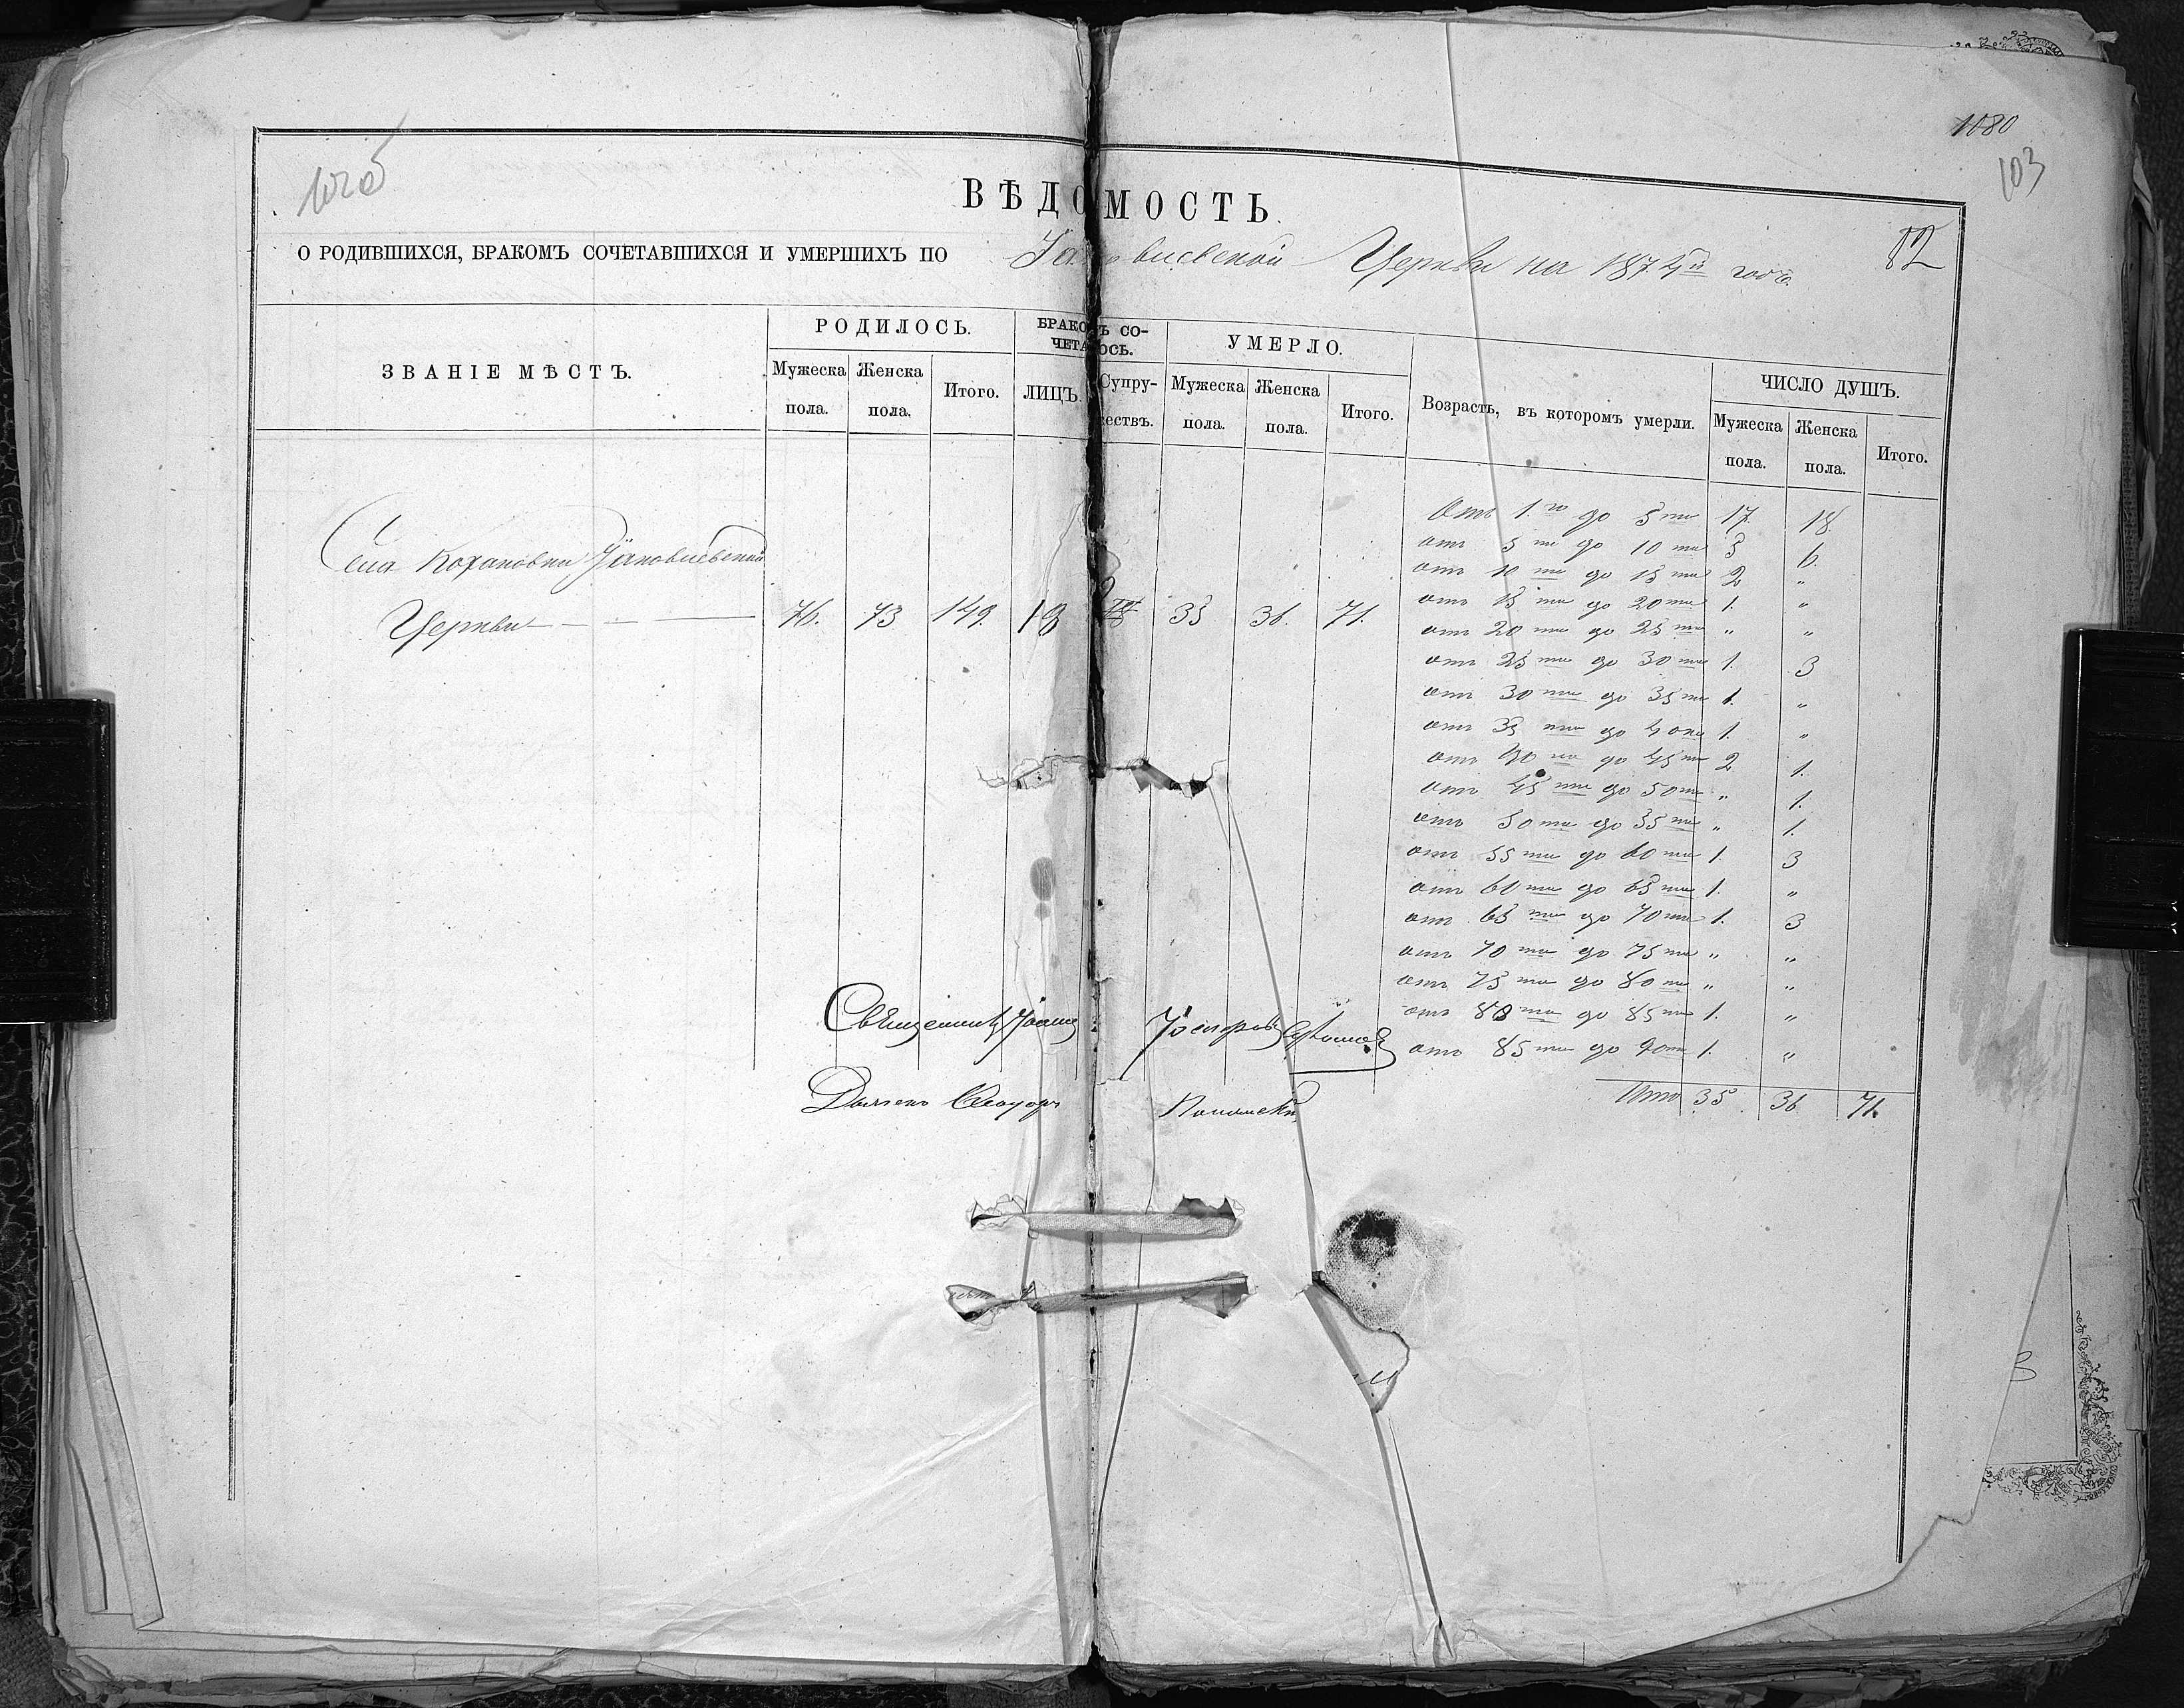 1080
103
102 об
ВѢДОМОСТЬ.
82
О РОДИВШИХСЯ, БРАКОМЪ СОЧЕТАВШИХСЯ И УМЕРШИХЪ ПО Церкви на 1874й годъ.
ЗВАНІЕ МѢСТЪ.
РОДИЛОСЬ.
БРАКОМЪ СО-
ЧЕТАЛОСЬ.
УМЕРЛО.
Возрастъ, въ которомъ умерли.
ЧИСЛО ДУШЪ.
Мужеска пола. Женска пола. Итого. ЛИЦЪ. Супру-жествъ. Мужеска пола. Женска пола. Итого. Мужеска пола. Женска пола. Итого.
Села Кохановки Іаковлевской
Церкви 76. 73 149. 35 36. 71.
Отъ 1.го до 5ти 17. 18.
отъ 5ти до 10ти 5 6.
отъ 10ти до 15ти 2 "
отъ 15ти до 20ти 1. "
отъ 20ти до 25ти " "
отъ 25ти до 30ти 1. 3
отъ 30ти до 35ти 1. "
отъ 35ти до 40ка 1. "
отъ 40ка до 45ти 2 1.
отъ 45ти до 50ти " 1.
отъ 50ти до 55ти " 1.
отъ 55ти до 60ти 1. 3
отъ 60ти до 65ти 1. "
отъ 65ти до 70ти 1. 3
отъ 70ти до 75ти " "
отъ 75ти до 80ти " "
отъ 80ти до 85ти 1. "
отъ 85ти до 90ти 1. "
Итого 35 36 71.
Священникъ Іоаннъ
Дьячекъ Ѳеодоръ